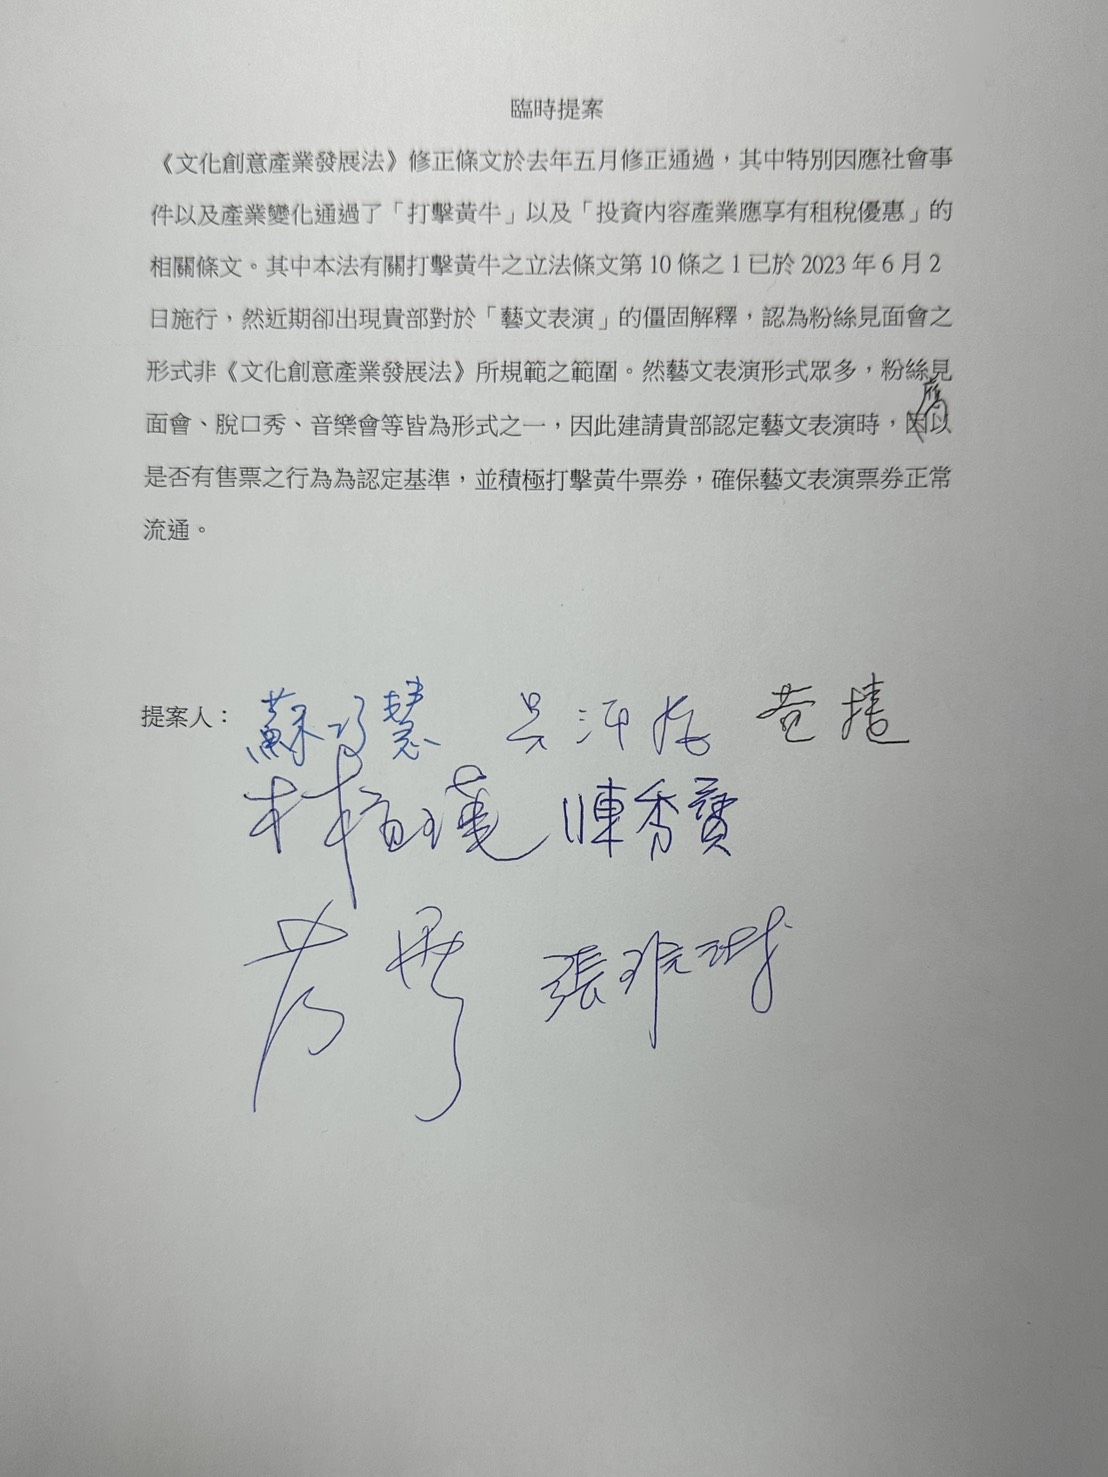 臨時提案
《文化創意產業發展法》修正條文於去年五月修正通過，其中特別因應社會事
件以及產業變化通過了「打擊黃牛」以及「投資內容產業應享有租稅優惠」的
相關條文。其中本法有關打擊黃牛之立法條文第 10 條之 1 已於 2023 年 6 月 2
日施行，然近期卻出現貴部對於「藝文表演」的僵固解釋，認為粉絲見面會之
形式非《文化創意產業發展法》所規範之範圍。然藝文表演形式眾多，粉絲見
應
面會、脫口秀、音樂會等皆為形式之一，因此建請貴部認定藝文表演時，因以
是否有售票之行為為認定基準，並積極打擊黃牛票券，確保藝文表演票券正常
流通。
提案人： 蘇巧慧 吳沛憶 黃捷
林宜瑾 陳秀寳
范雲 張雅琳